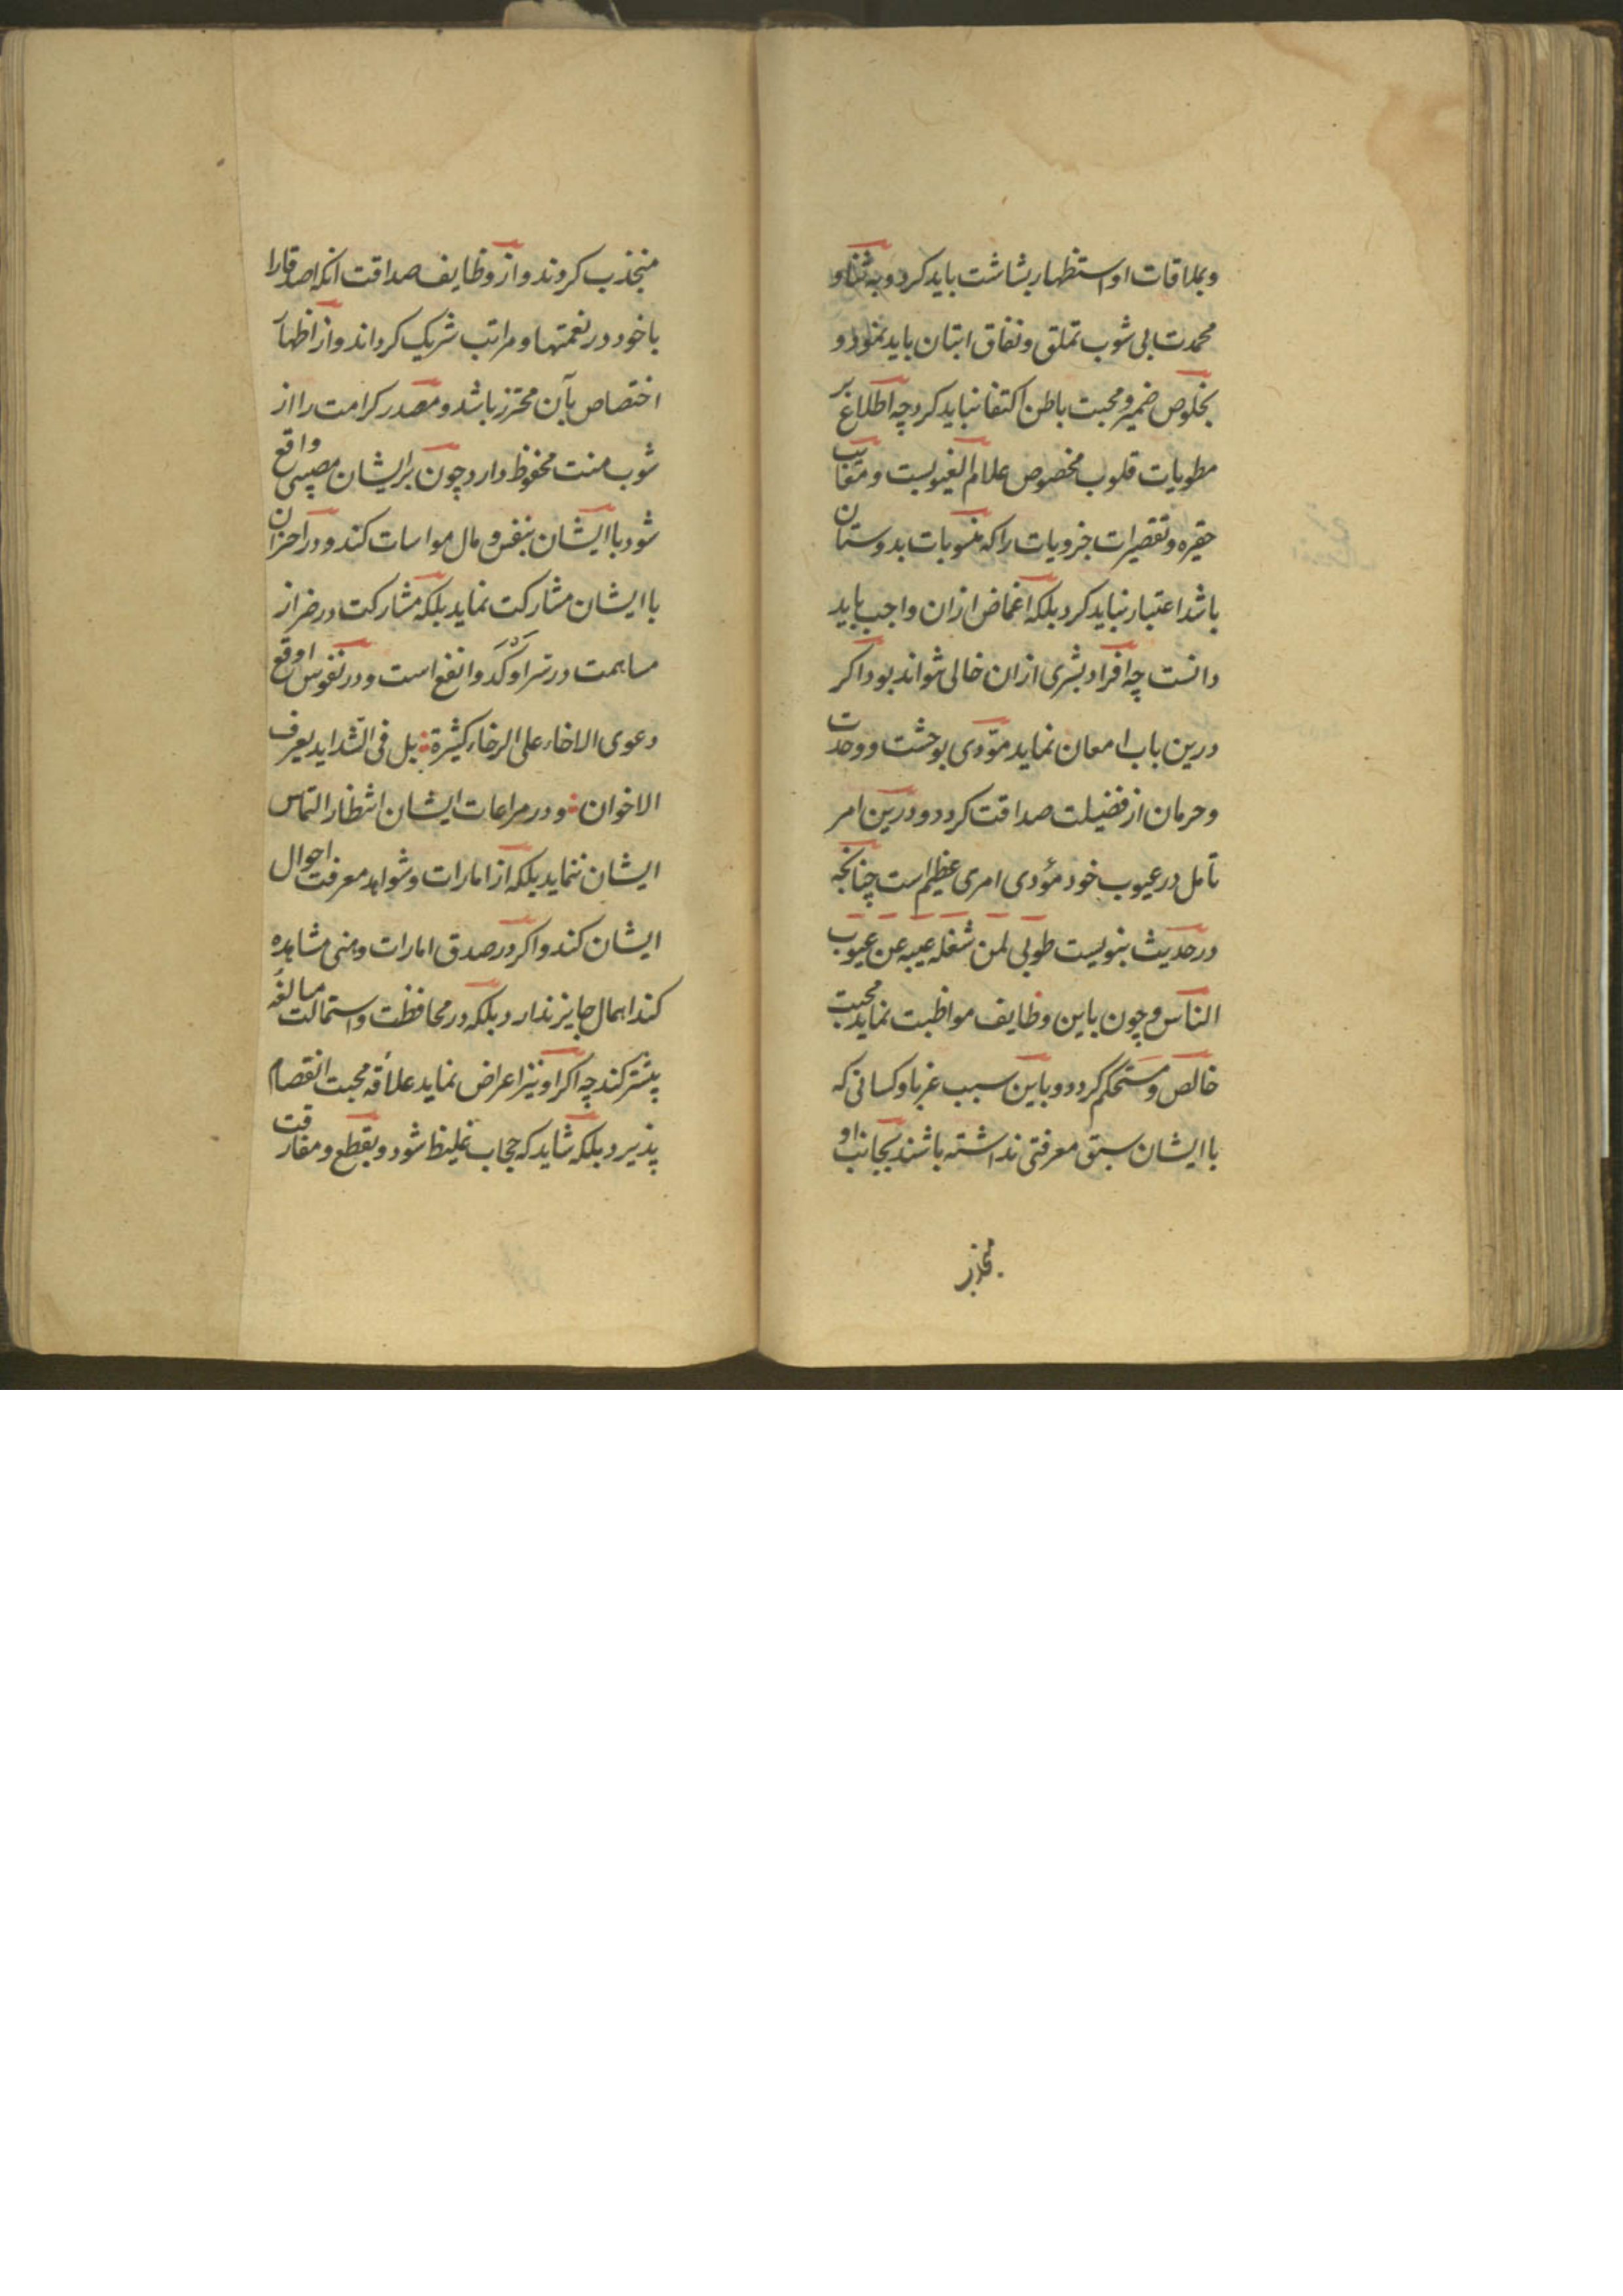 وبملاقات او استظهار بشاشت باید کرد و به ثنا و
محمدت بی شوب تملق و نفاق اتیان باید نمود و
بخلوص ضمیر و محبت باطن اکتفا نباید کرد چه اطلاع بر
مطویات قلوب مخصوص علام الغیوبست و
حقیره و تقصیرات جزویات را که منسوبات بدوستان
باشد اعتبار نباید کرد بلکه اغماض ازان واجب باید
دانست چه افراد بشری ازان خالی نتواند بود اکر
درین باب امعان نماید مؤدی بوحشت و وحدت
و حرمان از فضیلت صداقت کردد و درین امر
تامل در عیوب خود مؤدی امری عظیم است چنانکه
در حدیث نبویست طوبی لمن شغله عیبه عن عیوب
الناس و چون باین وظایف مواظبت نماید محبت
خالص و مستحکم کردد و باین سبب غربا و کسانی که
با ایشان سبق معرفتی نداشته باشند بجانب او
منجذب
منجذب کردند و از وظایف صداقت انکه اصدقا را
با خود در نعمتها و مراتب شریک کرداند و از اظهار
اختصاص بآن محترز باشد و مصدر کرامت را از
شوب منت محفوظ دارد چون بر ایشان مصیبتی واقع
شود با ایشان بنفس و مال مواسات کند و در احزان
با ایشان مشارکت نماید بلکه مشارکت در ضرا از
مساهمت در سرا اوکد و انفع است و در نفوس اوقع
دعوی الاخاء علی الرخاء کثیرة بل فی الشداید یعرف
الاخوان و در مراعات ایشان انتظار التماس
ایشان ننماید بلکه از امارات و شواهد معرفت احوال
ایشان کند و اکر در صدق امارات وهنی مشاهده
کند اهمال جایز ندارد بلکه در محافظت و استمالت مبالغه
بیشتر کند چه اکر او نیز اعراض نماید علاقه محبت انفصام
پذیرد بلکه شاید که حجاب غلیظ شود و بقطع و مفارقت